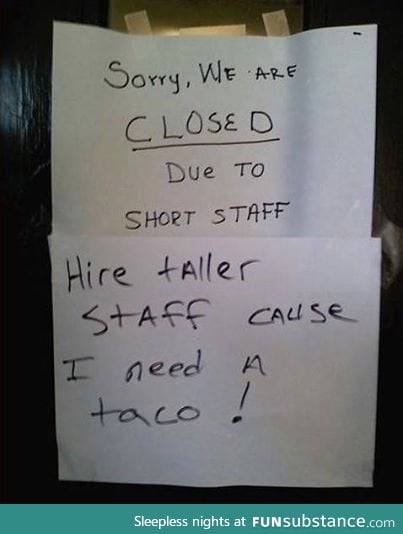 Sorry, WE ARE
CLOSED
DUE TO
SHORT STAFF
Hire tAller
StAFF CAUSE
I need A
taco!
Sleepless nights at FUNsubstance.com